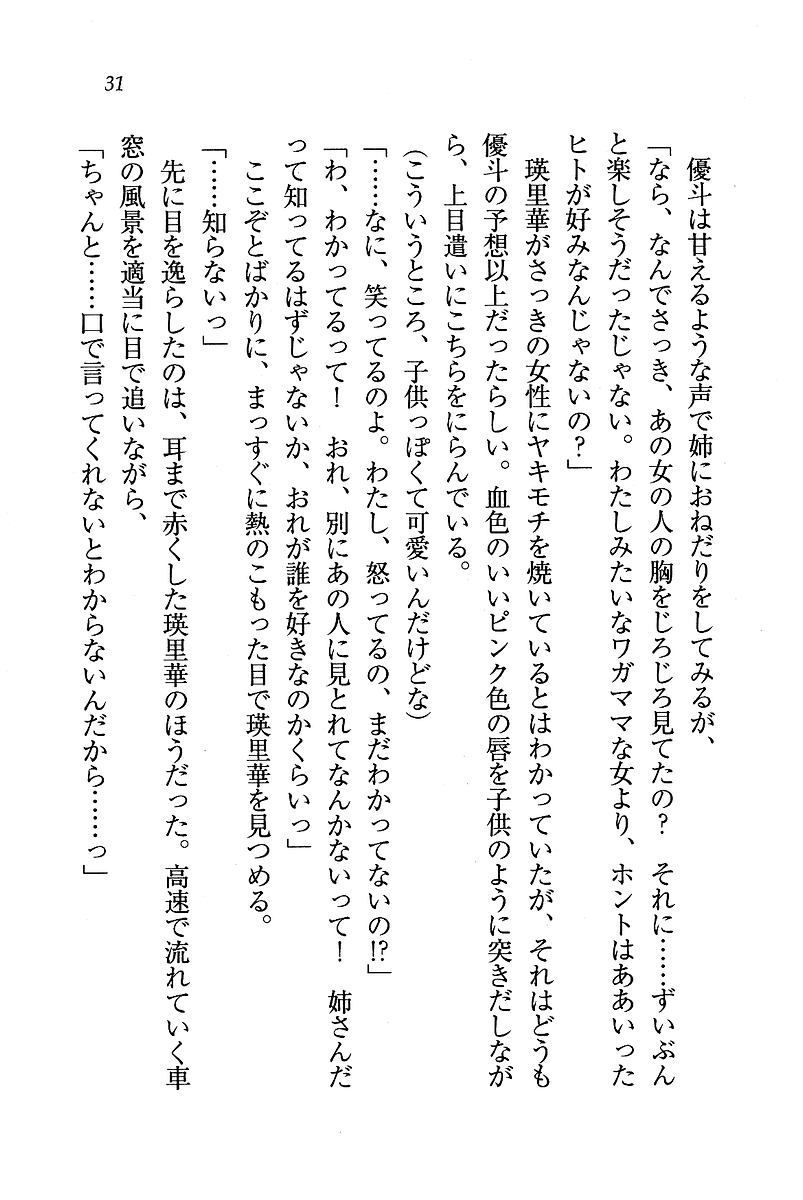 31
優斗は甘えるような声で姉におねだりをしてみるが、
「なら、なんでさっき、あの女の人の胸をじろじろ見てたの？　それに……ずいぶん
と楽しそうだったじゃない。わたしみたいなワガママな女より、ホントはああいった
ヒトが好みなんじゃないの？」
瑛里華がさっきの女性にヤキモチを焼いているとはわかっていたが、それはどうも
優斗の予想以上だったらしい。血色のいいピンク色の唇を子供のように突きだしなが
ら、上目遣いにこちらをにらんでいる。
（こういうところ、子供っぽくて可愛いんだけどな）
「……なに、笑ってるのよ。わたし、怒ってるの、まだわかってないの!?」
「わ、わかってるって！　おれ、別にあの人に見とれてなんかないって！　姉さんだ
って知ってるはずじゃないか、おれが誰を好きなのかくらいっ」
ここぞとばかりに、まっすぐに熱のこもった目で瑛里華を見つめる。
「……知らないっ」
先に目を逸らしたのは、耳まで赤くした瑛里華のほうだった。高速で流れていく車
窓の風景を適当に目で追いながら、
「ちゃんと……口で言ってくれないとわからないんだから……っ」